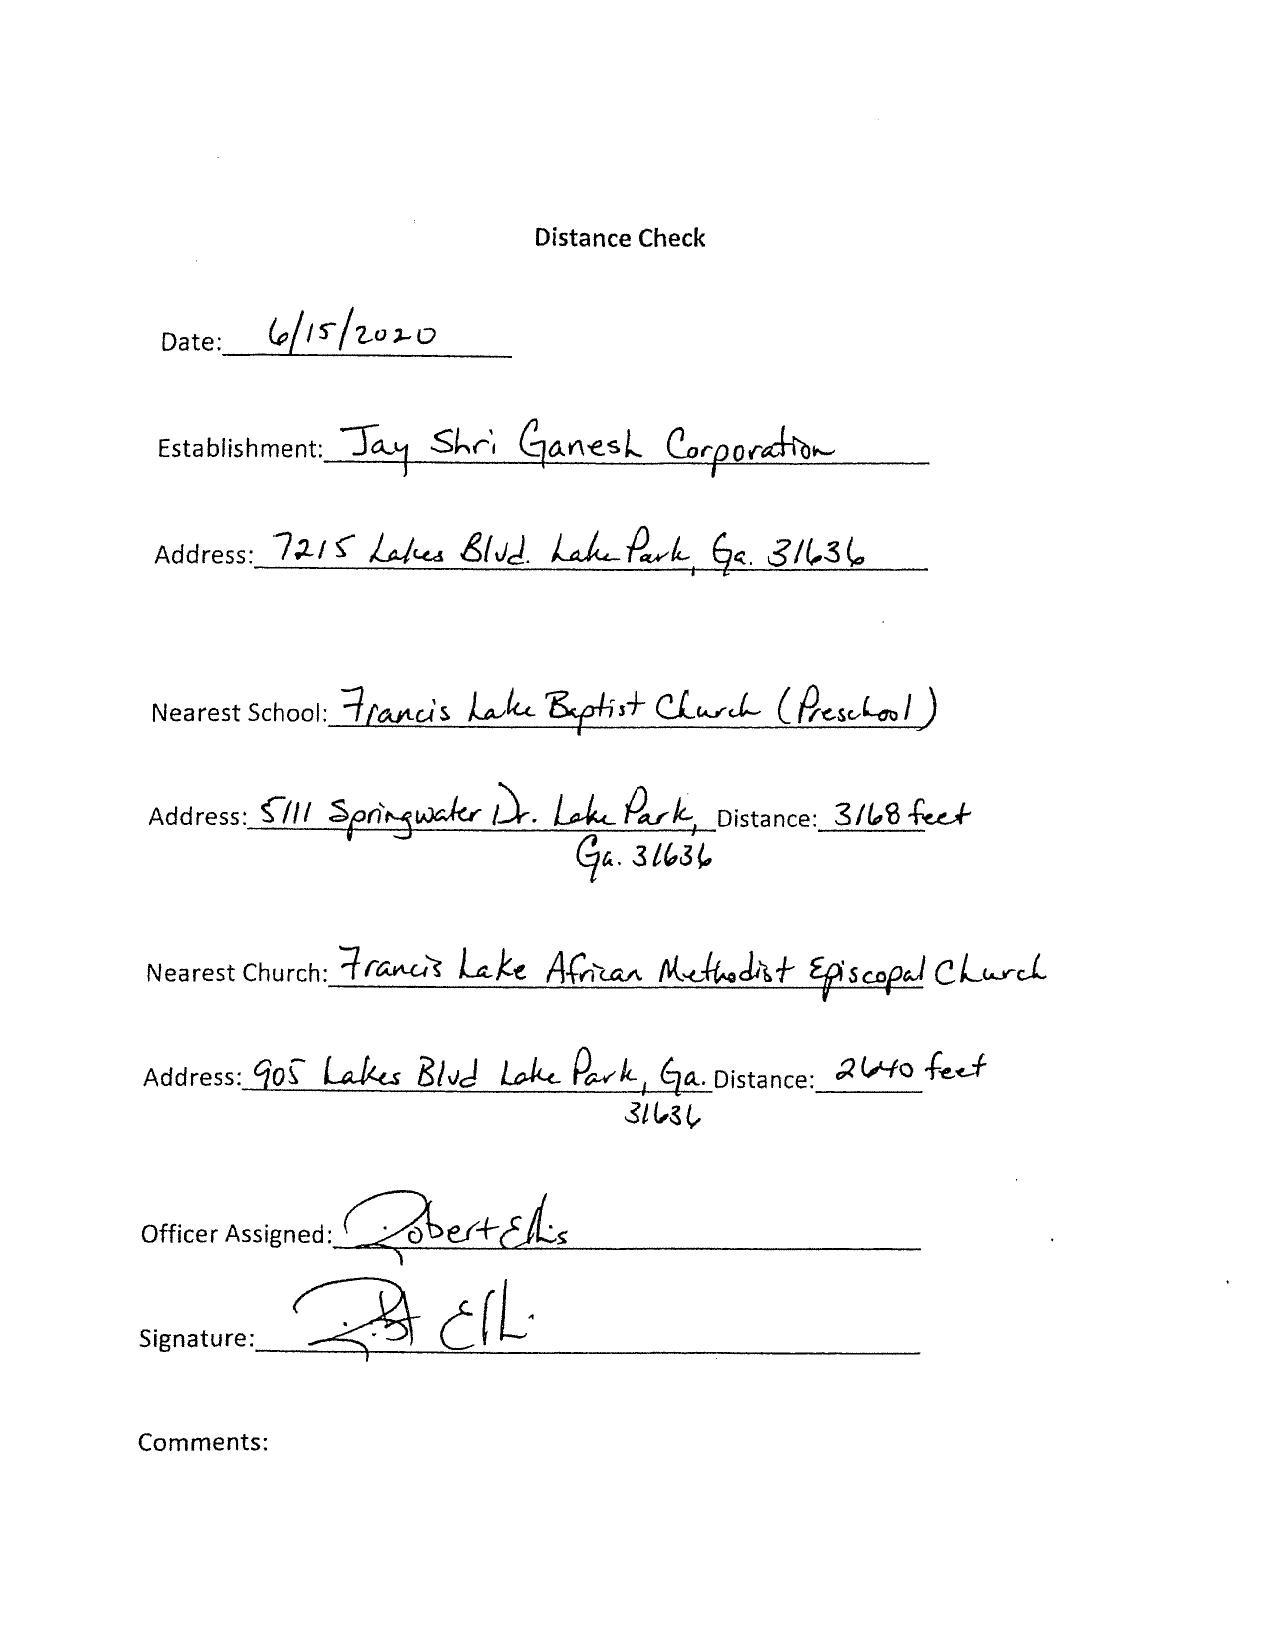 Distance Check
Date: 6/15/2020
Establishment: Jay Shri Ganesh Corporation
Address: 7215 Lakes Blvd. Lake Park, Ga. 31636
Nearest School: Francis Lake Baptist Church (Preschool)
Address: 5111 Springwater Dr. Lake Park, Distance: 3168 feet
Ga. 31636
Nearest Church: Francis Lake African Methodist Episcopal Church
Address: 905 Lakes Blvd Lake Park, Ga. Distance: 2640 feet
31636
Officer Assigned: Robert Ellis
Signature:
Comments: